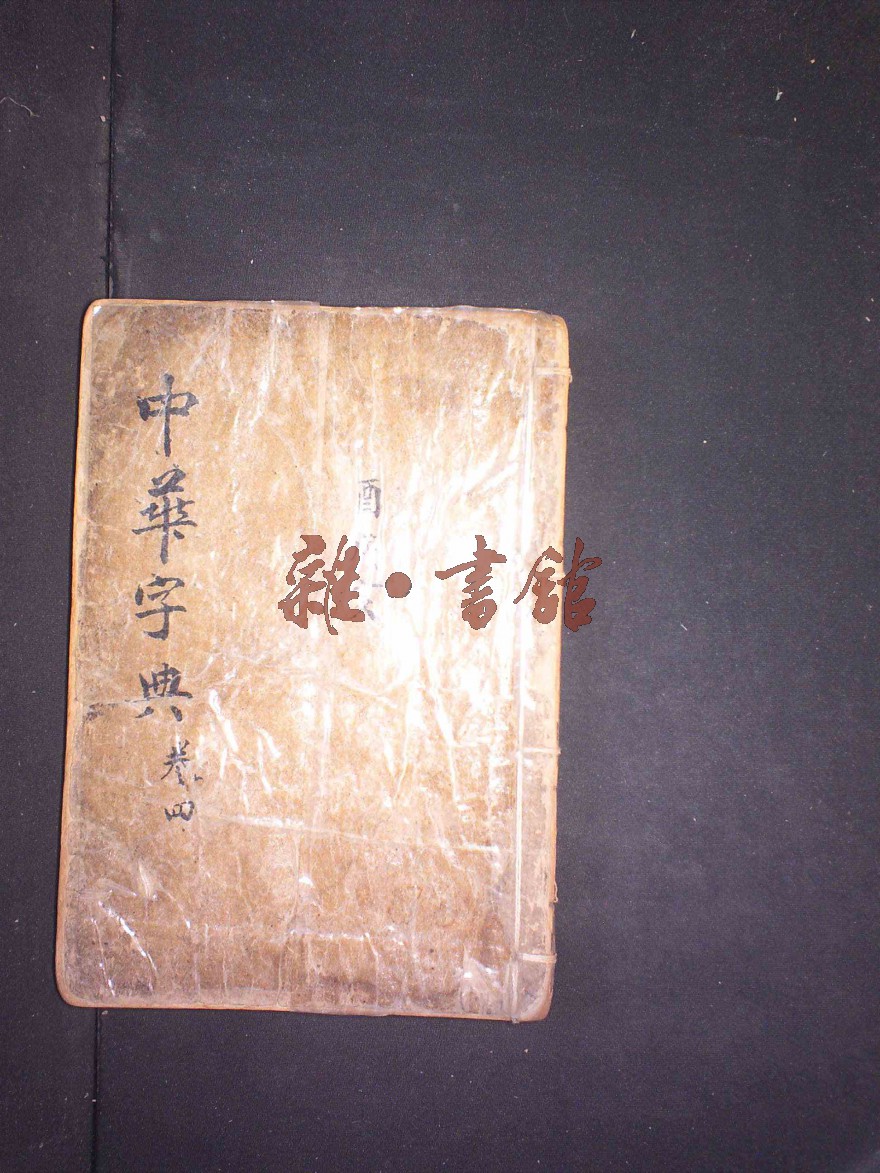 中華字典 卷四
酉
雜·書館